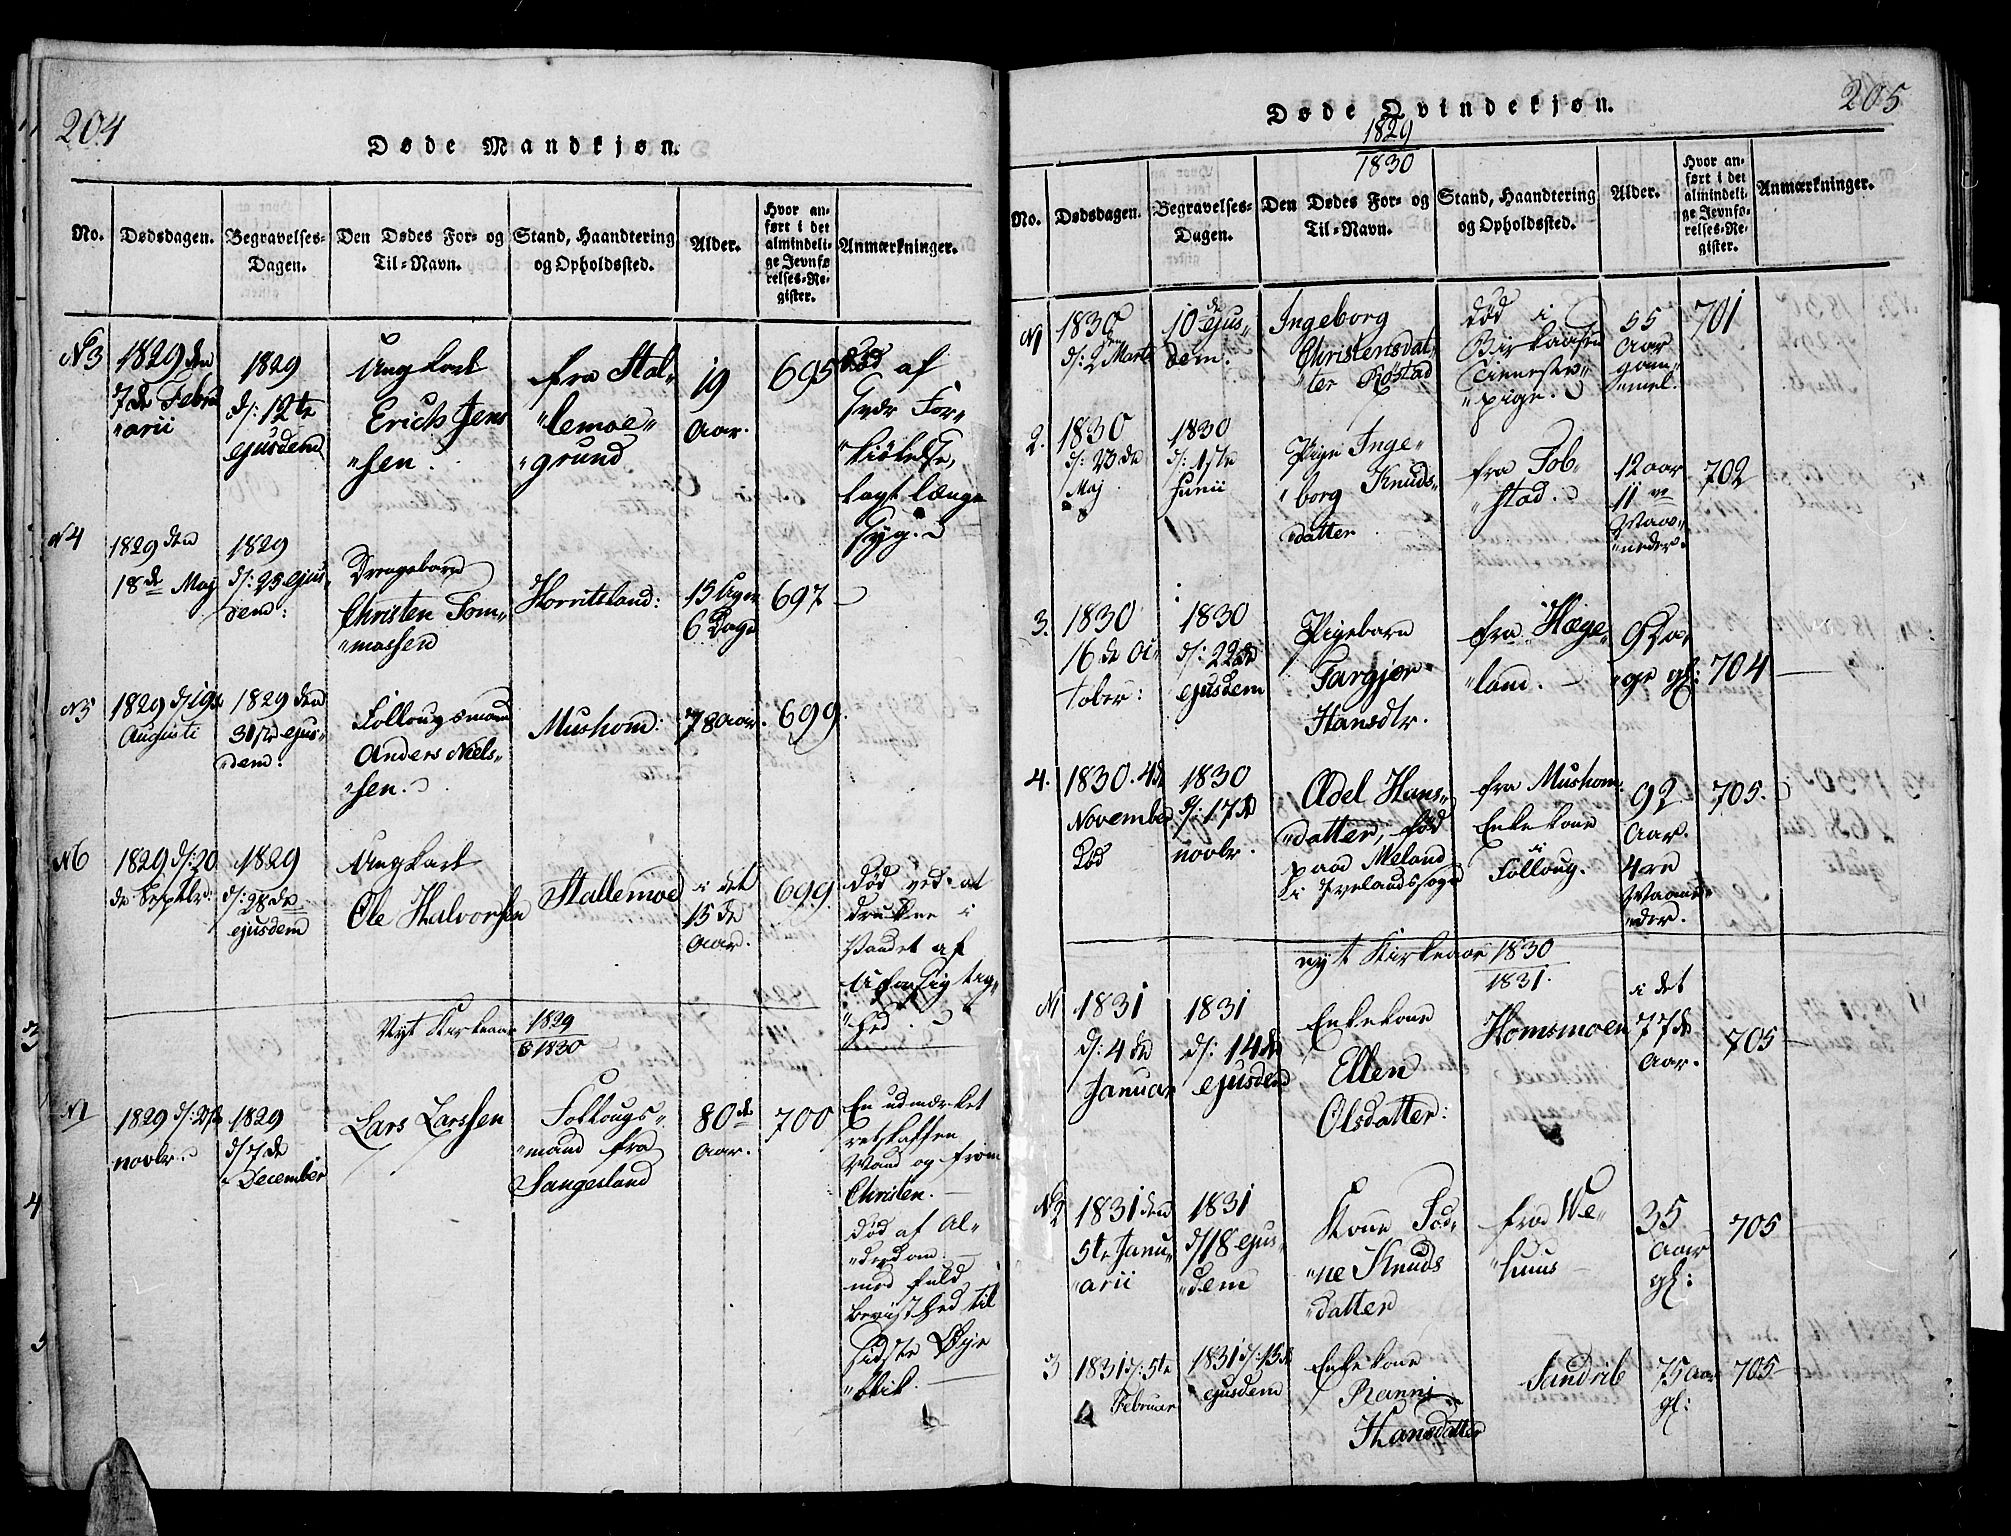 204
Døde Mandkjøn.
No.
Dødsdagen.
Begravelses-
Dagen.
Den Dødes For- og
Til-Navn.
Stand, Haandtering
og Opholdssted.
Alder.
Hvor an-
ført i det
almindeli-
ge Jevnfø-
relses-Re-
gister.
Anmærkninger.
N3
1829 den
7de Febru
"arii
1829
d: 12te
ejusdem
Ungkarl
Erich Jens
"sen.
fra Stal-
"lemoe-
"grund
19
Aar.
695
død af
For-
"kiølelse,
længe
syg.
N4
1829 den
18de Maj
1829
d: 25 ejus-
dem:
Drengebarn
Christen Tom-
"massen
Horritsland:
15 Uger
6 Dage
697
N5
1829 d: 19de
Augusti
1829 den
31te ejus-
"dem:
Follougsmand
Anders Niels-
sen.
Mushom:
78 Aar.
699.
N6
1829 d: 20
de Septbr:
1829
d: 28de
ejusdem
Ungkarl
Ole Halvorsen
Stallemoe
i det
15de
Aar.
699.
død ved at
drukne i
Vandet af
Uforsigtig-
"hed.
Nyt Kirkeaar 1829
1830
N1
1829 d: 27de
novbr.
1829
d: 7de
December
Lars Larssen
Follougs-
"mand fra
Sangesland
80de
Aar.
700
En udmærket
retskaffen
Mand og from
Christen.
død af Al-
"derdom
med fuld
Bevidsthed til
sidste Øye
"blik.
205
Døde Qvindekjøn.
1829
1830
No.
Dødsdagen.
Begravelses-
Dagen.
Den Dødes For- og
Til-Navn.
Stand, Haandtering
og Opholdssted.
Alder.
Hvor an-
ført i det
almindeli-
ge Jevnfø-
relses-Re-
gister.
Anmærkninger.
N1
1830
d: 2 Marts
10de ejus-
dem.
Ingeborg
Christensdat-
"ter Røstad
død i
Birkaasen
Tieneste-
"pige.
55
Aar
gam-
mel.
701
2.
1830
d: 23de
Maj
1830
d: 1ste
Junii
Pige Inge-
"borg Knuds-
"datter
fra Fob-
"stad.
12 aar
11
Maa-
"neder.
702
3.
1830
16de Oc-
tober:
1830
d: 22de
ejusdem
Pigebarn
Targjer
Hansdtr.
fra Hæge-
"land.
9 Da-
"ge gl:
704
4.
1830. 4de
November
død
1830
d: 17de
novbr.
Adel Hans-
"datter, fød
paa Meland
i Ivelandssogn
fra Mushom
Enkekone
Folloug.
92
Aar.
4re
Maane-
"der.
705.
nyt Kirkeaar 1830
1831.
N1
1831
d: 4de
Januar
1831
d: 14de
ejusdem
Enkekone
Ellen
Olsdatter:
Homsmoen
i det
77de
Aar.
705
N2
1831 den
5te Janu-
"arii
1831
d: 18 ejus-
"dem
Kone Tod-
"ne Knuds
"datter
fra We-
"huus
35
Aar
gl:
705
3
1831 d: 5te
Februar
1831 d: 13de
ejusdem
Enkekone
Ranni
Hansdatter
Sandrib
75 aar
gl:
705